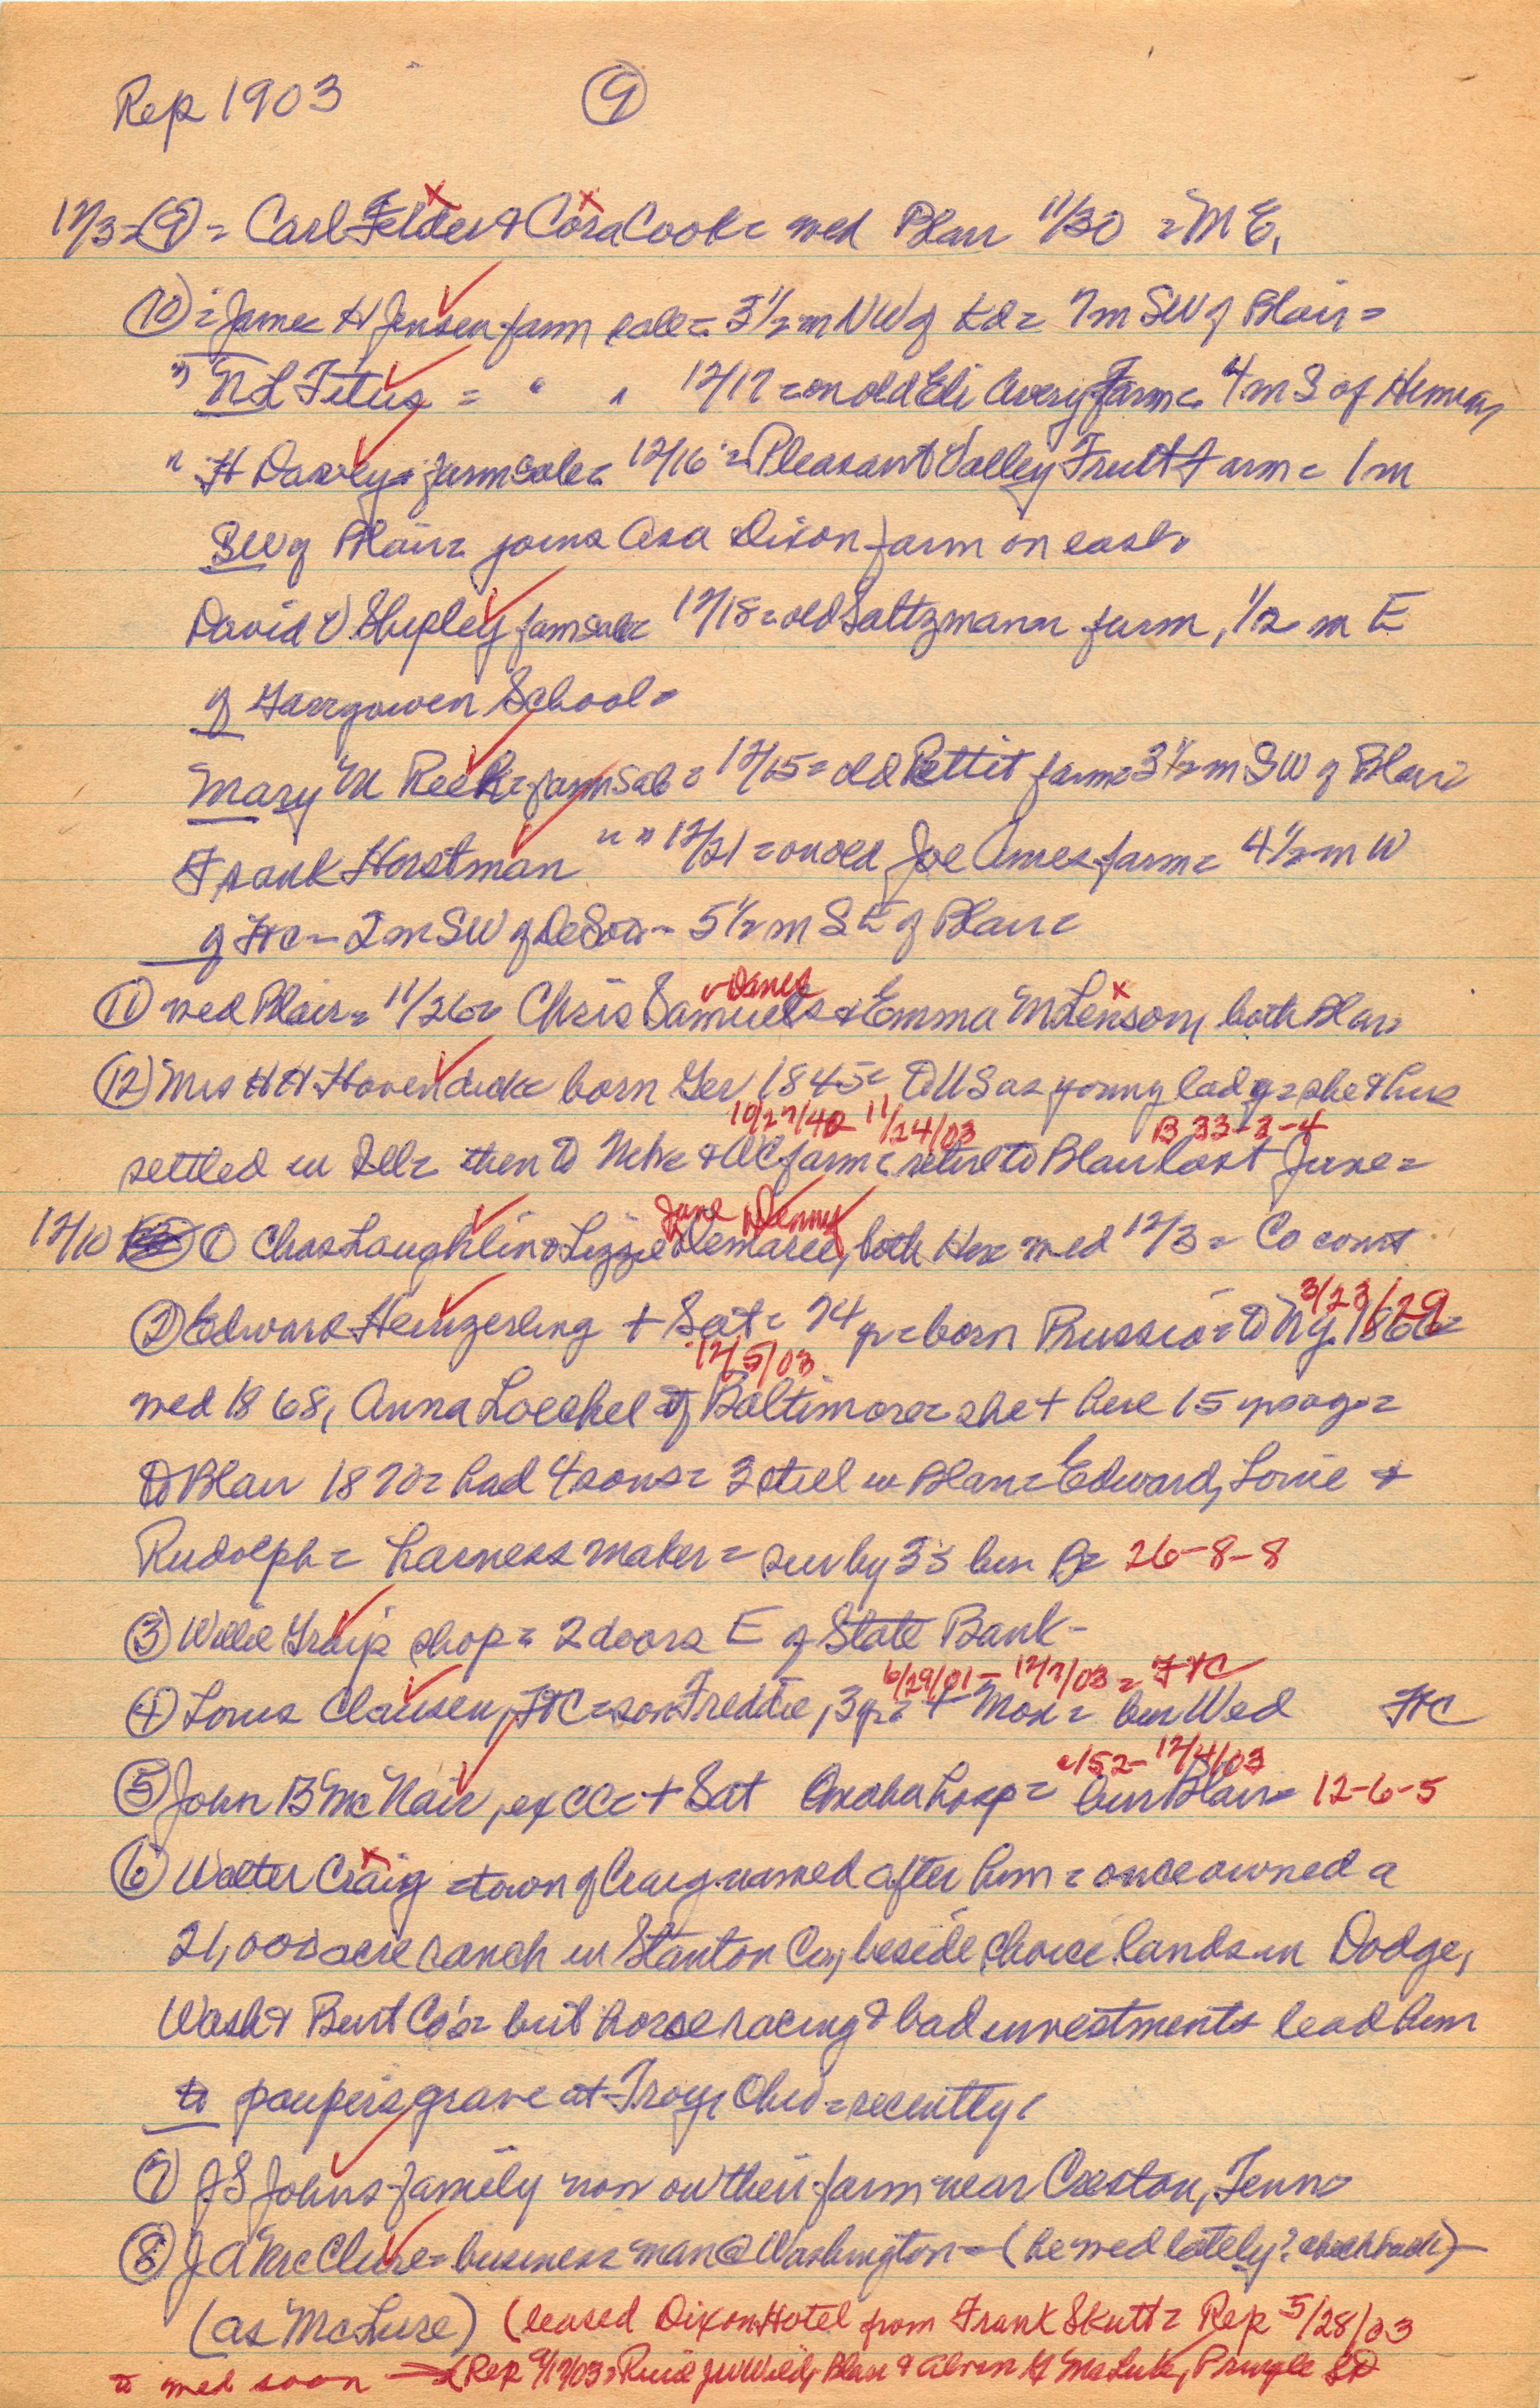 Rep 1903 9
12/3 = 9 = Carl Felder & Cora Cook = wed Blair 11/30 = M E.
10 = James H Jensen farm sale = 3 1/2 m NW of Kd = 7 m SW of Blair =
" N L Titus = " " 12/17 = on old Eli Avery Farm = 4 m S of Herman
" H Dasvley = farm sale = 12/16 = Pleasant Valley Fruit Farm = 1 m
SW of Blair = joins Asa Dixon farm on east.
David V Shipley farm sale = 12/18 = old Saltzmann farm, 1/2 m E
of Garryowen School =
Mary M Reeh = farm sale = 12/15 = old Pettit farm = 3 1/2 m SW of Blair
Frank Horstman " " 12/21 = on old Joe Ames farm = 4 1/2 m W
of FtC = 2 m SW of DeSoto = 5 1/2 m SE of Blair =
- Danes
11 wed Blair = 11/26 = Chris Samuels & Emma M Lenson, both Blair
12 Mrs H H Hovendick born Ger 1845 = to US as young lady = she & hus
10/27/40 - 11/24/03 B 33-3-4
settled in Ill = then to Nebr & WC farm = retired to Blair last June =
Jane Denny
12/10 1 Chas Laughlin & Lizzie Demaree, both Her wed 12/3 = Co court
3/23/29
2 Edward Heinzerling + Sat = 74 yr = born Prussia = to NY. 1866 =
12/5/03
wed 1868, Anna Loechel of Baltimore = she + here 15 yrs ago =
to Blair 1870 = had 4 sons = 3 still in Blair = Edward, Louie &
Rudolph = harness maker = sur by 3s bur B = 26-8-8
3 Willie shop = 2 doors E of State Bank -
6/29/01 - 12/7/03 = FtC
4 Louis Clausen, FtC = son Freddie, 3 yr = + Mon = bur Wed FtC
152 - 12/4/03
5 John B McNair, ex CCc + Sat Omaha hosp = bur Blair = 12-6-5
6 Walter Craig = town of Craig named after him = once owned a
21,000 acre ranch in Stanton Co, beside choice lands in Dodge,
Wash & Burt Co's = but horse racing & bad investments lead him
to paupers grave at Troy, Ohio = recently.
7 J S Johns family now on their farm near Creston, Tenn =
8 J A McClure = business man @ Washington = (he wed lately? check back) -
(as McLure) (leased Dixon Hotel from Frank Skutt = Rep 5/28/03
to wed soon → (Rep 9/17/03 = J W Wild, Blair & Alven G McLuk, Pringle SD